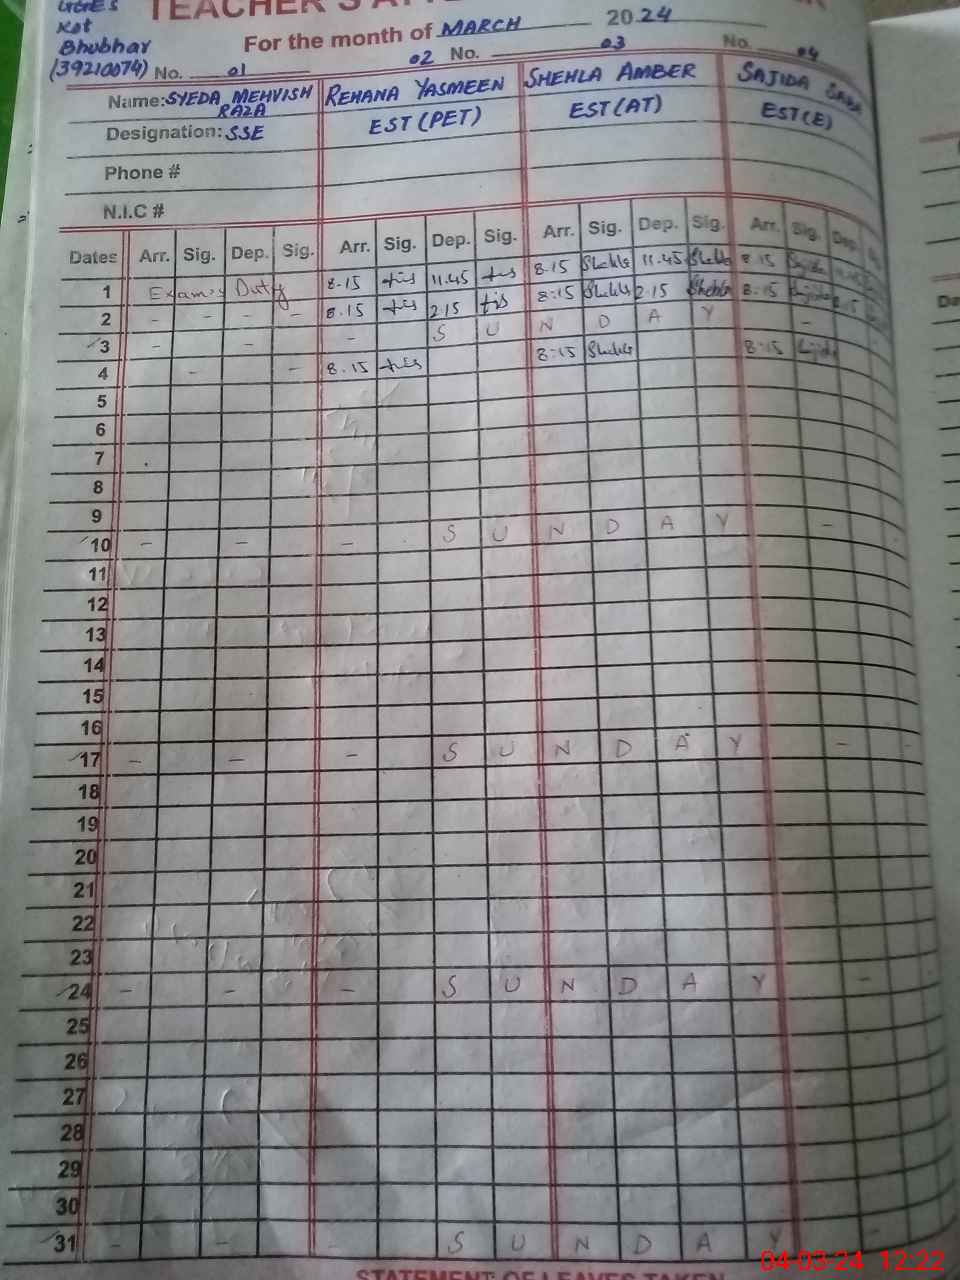 GGHES
Kot
Bhubhar
(39210074)
For the month of MARCH 2024
No. 01 02 No. 03 No. 04
Name: SYEDA MEHVISH RAZA REHANA YASMEEN SHEHLA AMBER SAJIDA SABA
Designation: SSE EST (PET) EST (AT) EST(E)
Phone #
N.I.C #
Dates Arr. Sig. Dep. Sig. Arr. Sig. Dep. Sig. Arr. Sig. Dep. Sig. Arr. Sig. Dep.
1 Exams Duty 8.15 11.45 8.15 Shehla 11.45 Shehla 8.15 Sajida 11.45
2 - - - - 8.15 2.15 8:15 Shehla 2.15 Shehla 8:15 Sajida 2.15
3 - - - S U N D A Y -
4 - - 8.15 8:15 Shehla 8:15 Sajida
5
6
7
8
9
10 - - - S U N D A Y -
11
12
13
14
15
16
17 - - - S U N D A Y - -
18
19
20
21
22
23
24 - - - S U N D A Y -
25
26
27
28
29
30
31 - - - S U N D A Y -
04-03-24 12:22
STATEMENT OF LEAVES TAKEN